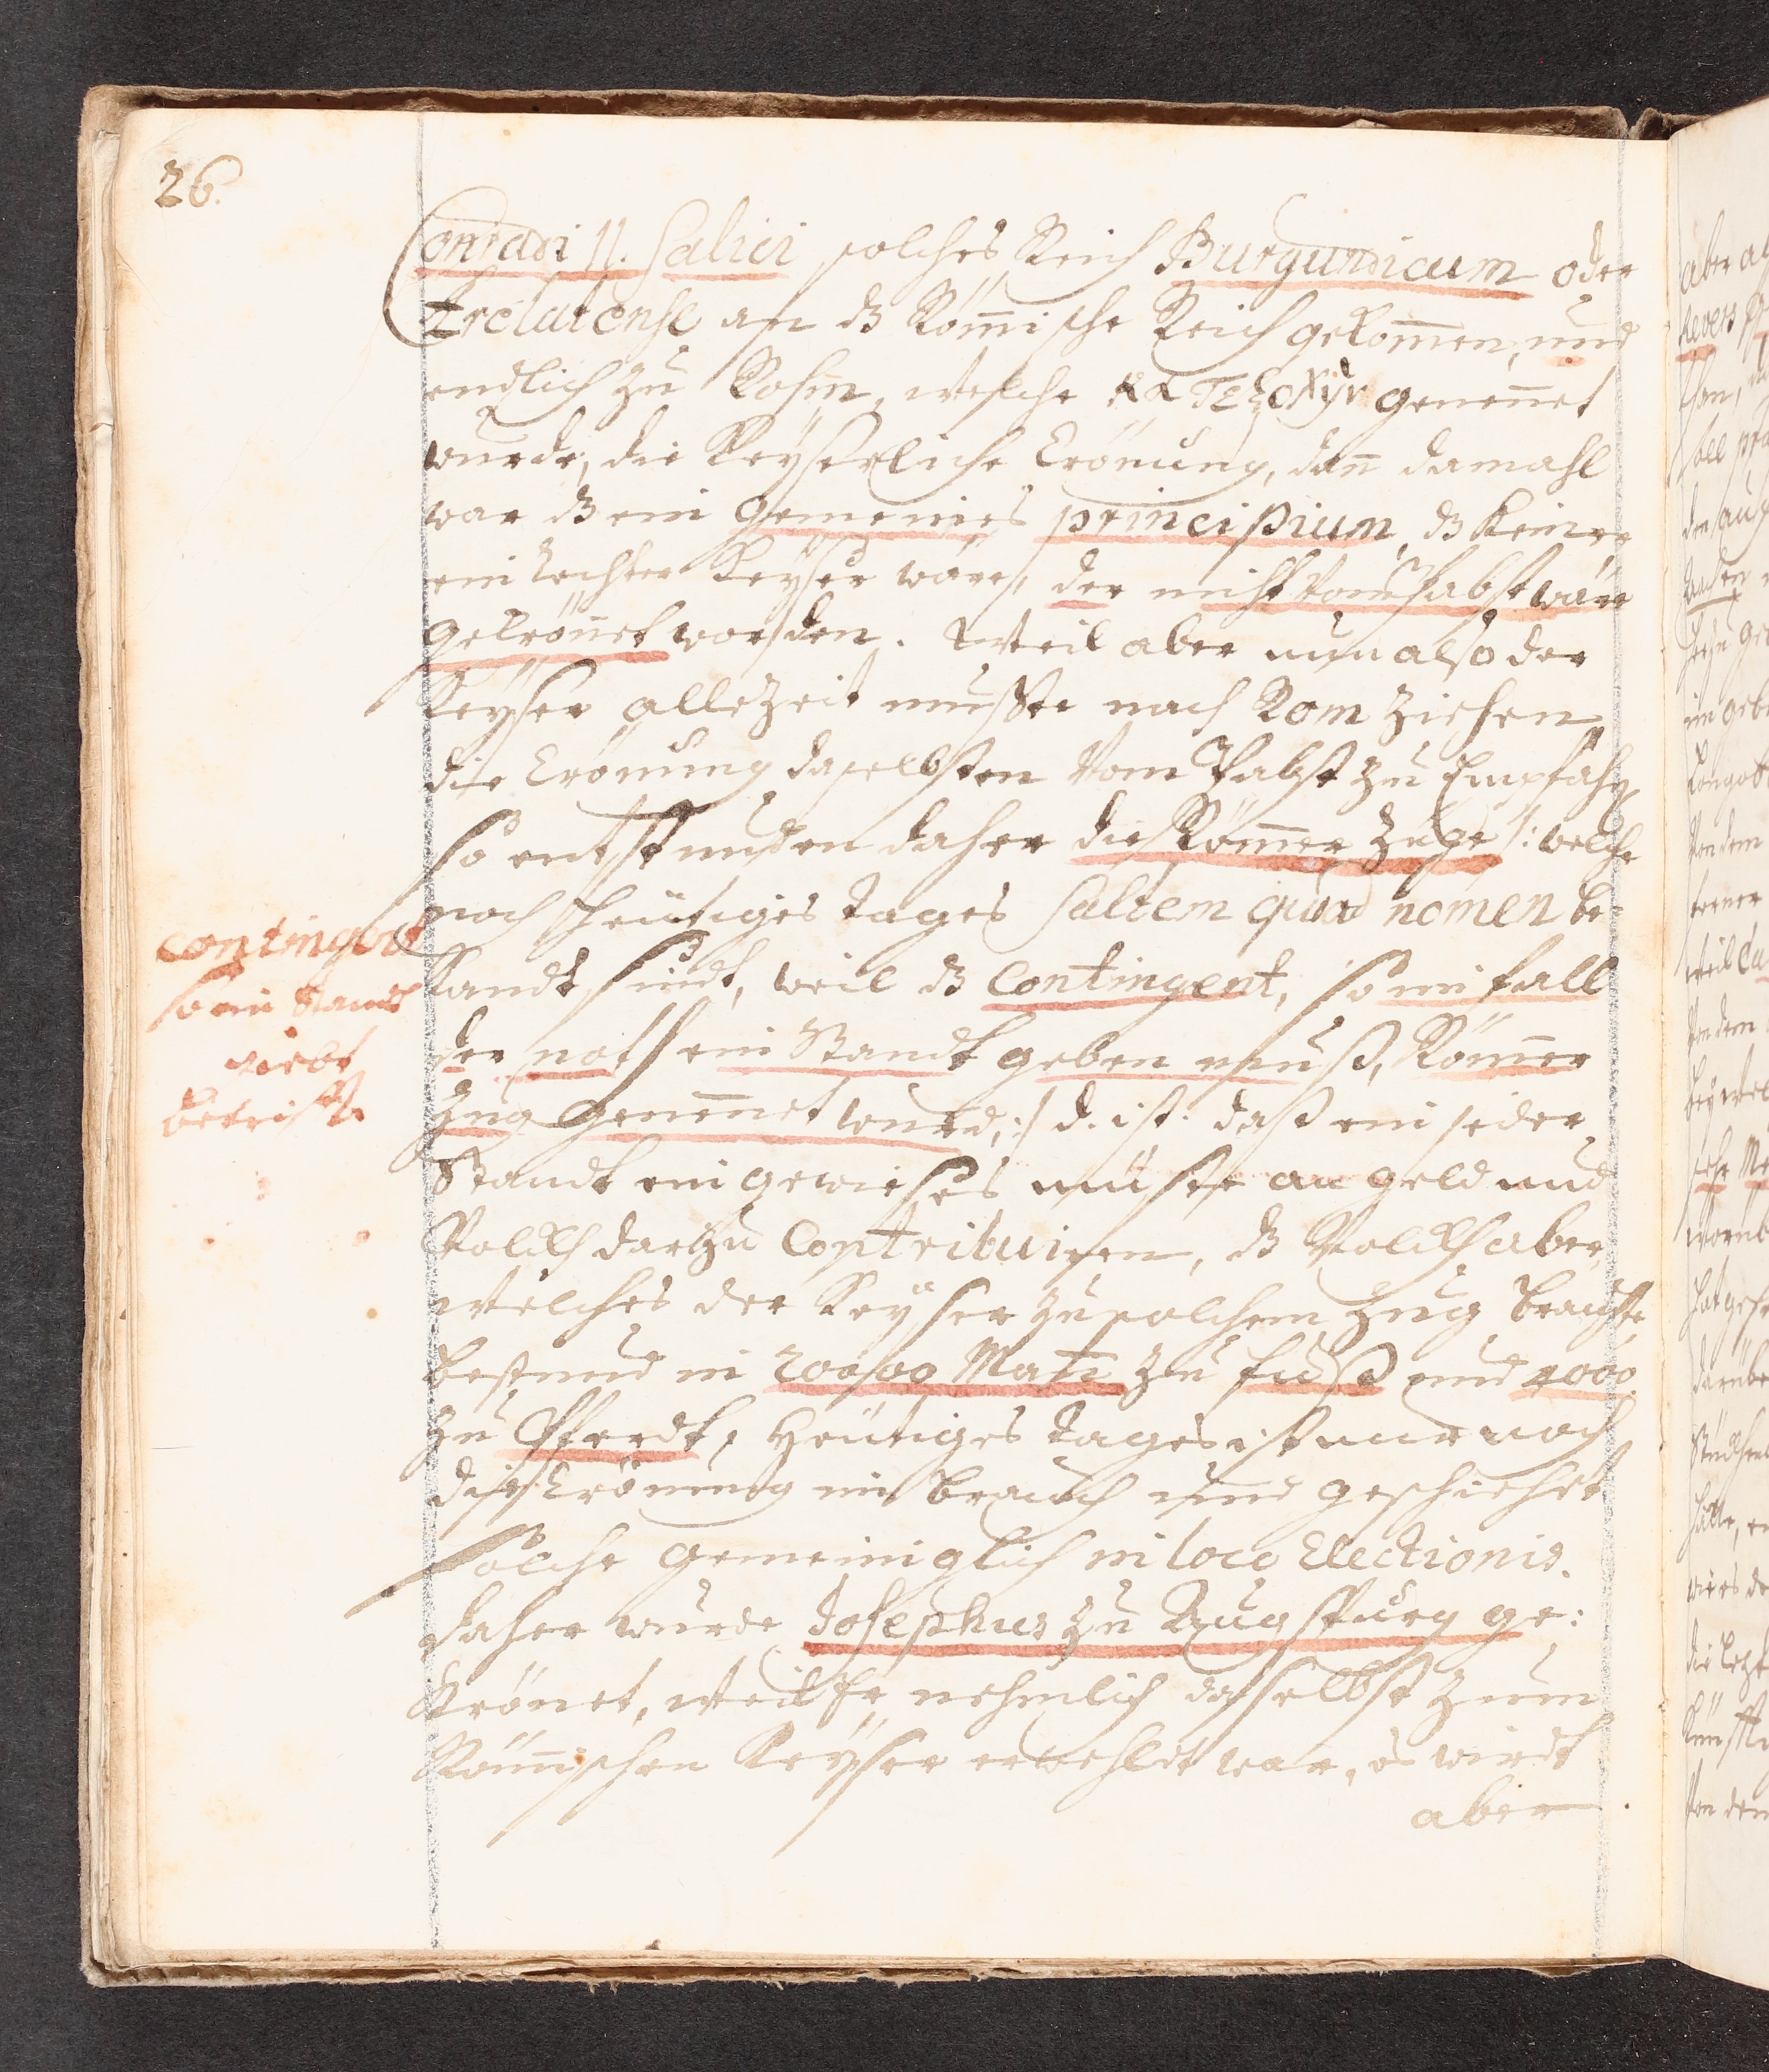 26.
Conradi II. Salici solches Reich Burgundicum oder
Arelatense an dz Römische Reich gekom̄en, und
endlich zu Rohm, welche κατ' ἐξοχὴν genen̄et
wurde, die Keÿserliche Crönung, dan̄ damahl
war dz ein gemeines principium, dz keiner
ein rechter Keÿser wäre, der nicht vom Pabst wäre
gekrön̄et worden. Weil aber nun also der
Keÿser allezeit muste nach Rom ziehen
die Crönung daselbsten vom Pabst zu Empfahen
so entstunden daher die Röm̄er Züge /: welche
noch heütiges tages saltem quoad nomen be-
kandt sindt, weil dz Contingent, so im fall
der noth ein Standt geben muß, Röm̄er
Zug genen̄et wurd, :/ d. ist: daß ein jeder
Standt ein gewißes müste an geld und
Volckh darzu Contribuiren, dz Volckh aber,
welches der Keÿser zu solchem Zug brauchte
bestund in 20000 Man̄ zu fuß und 4000
zu Pferdt, Heütiges tages ist nur noch
die Crönung im brauch und geschiehet
solche gemeiniglich in loco Electionis.
daher wurde Josephus zu Augspurg ge:
krönet, weil Er nehmlich daselbst zum
Röm̄ischen Keÿser erwehlet war, es wirdt
aber
Contingent
so ein Stand
giebt
betrifft.